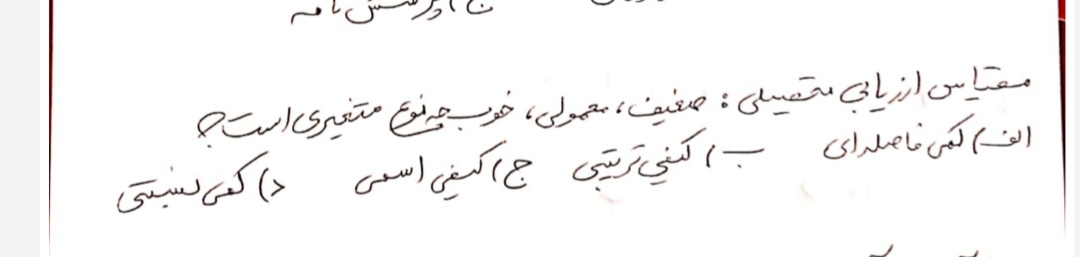 ج) پرسش نامه
مقیاس ارزیابی تحصیلی: ضعیف، معمولی، خوب چه نوع متغیری است؟
الف) کمی فاصله‌ای ب) کیفی ترتیبی ج) کیفی اسمی د) کمی نسبتی